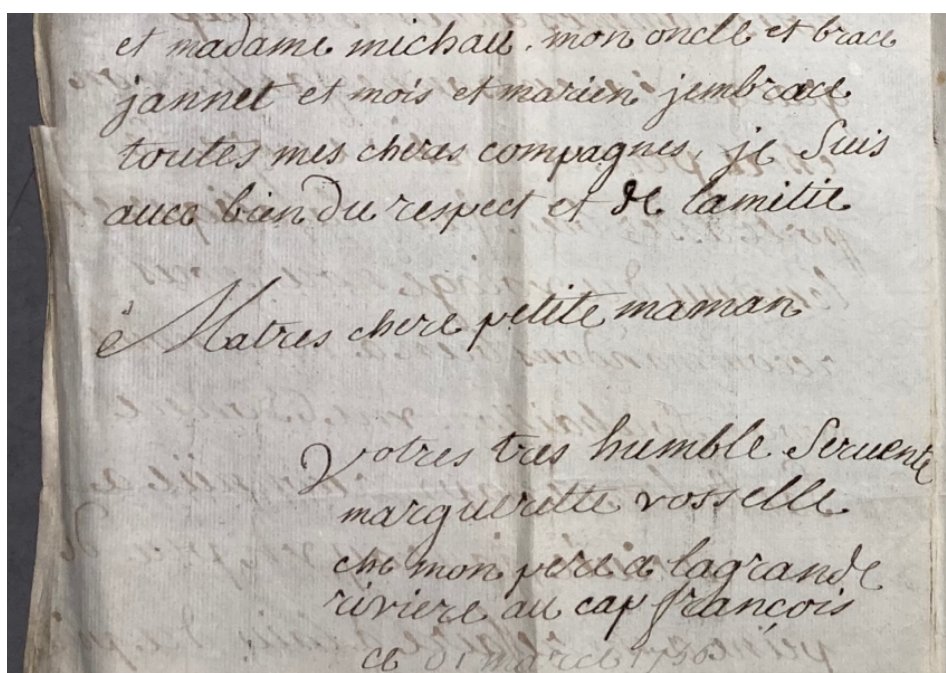 et madame michau. mon oncle et brace
jannet et mois et marien jembrace
toutes mes cheres compagnes, je Suis
auce bien du respect et de lamitie
Matres chere petite maman
votres tres humble Seruente
marguerette vosselle
che mon pere a lagrande
riviere au cap françois
ce